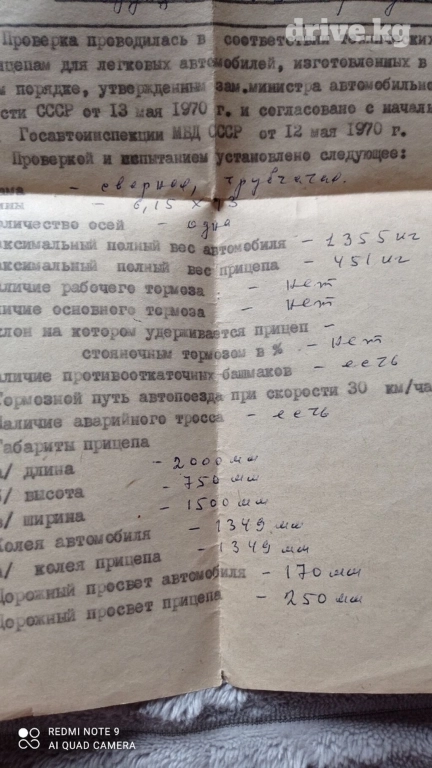 drive.kg
Проверка проводилась в соответствии
ицепам для легковых автомобилей, изготовленных в
м порядке, утвержденным зам.министра автомобильно
сти СССР от 13 мая 1970 г. и согласовано с началь
Госавтоинспекции МВД СССР от 12 мая 1970 г.
Проверкой и испытанием установлено следующее:
ама - сварная, трубчатая.
ины - 6,15 х 13
аличество осей - одна
аксимальный полный вес автомобиля - 1355 кг
аксимальный полный вес прицепа - 451 кг
аличие рабочего тормоза - нет
личие основного тормоза - нет
клон на котором удерживается прицеп -
стояночным тормозом в % - нет
аличие противооткаточных башмаков - есть
Тормозной путь автопоезда при скорости 30 км/ча
Наличие аварийного тросса - есть
Габариты прицепа
а/ длина - 2000 мм
б/ высота - 750 мм
в/ ширина - 1500 мм
Колея автомобиля - 1349 мм
а/ колея прицепа - 1349 мм
Дорожный просвет автомобиля - 170 мм
Дорожный просвет прицепа - 250 мм
REDMI NOTE 9
AI QUAD CAMERA